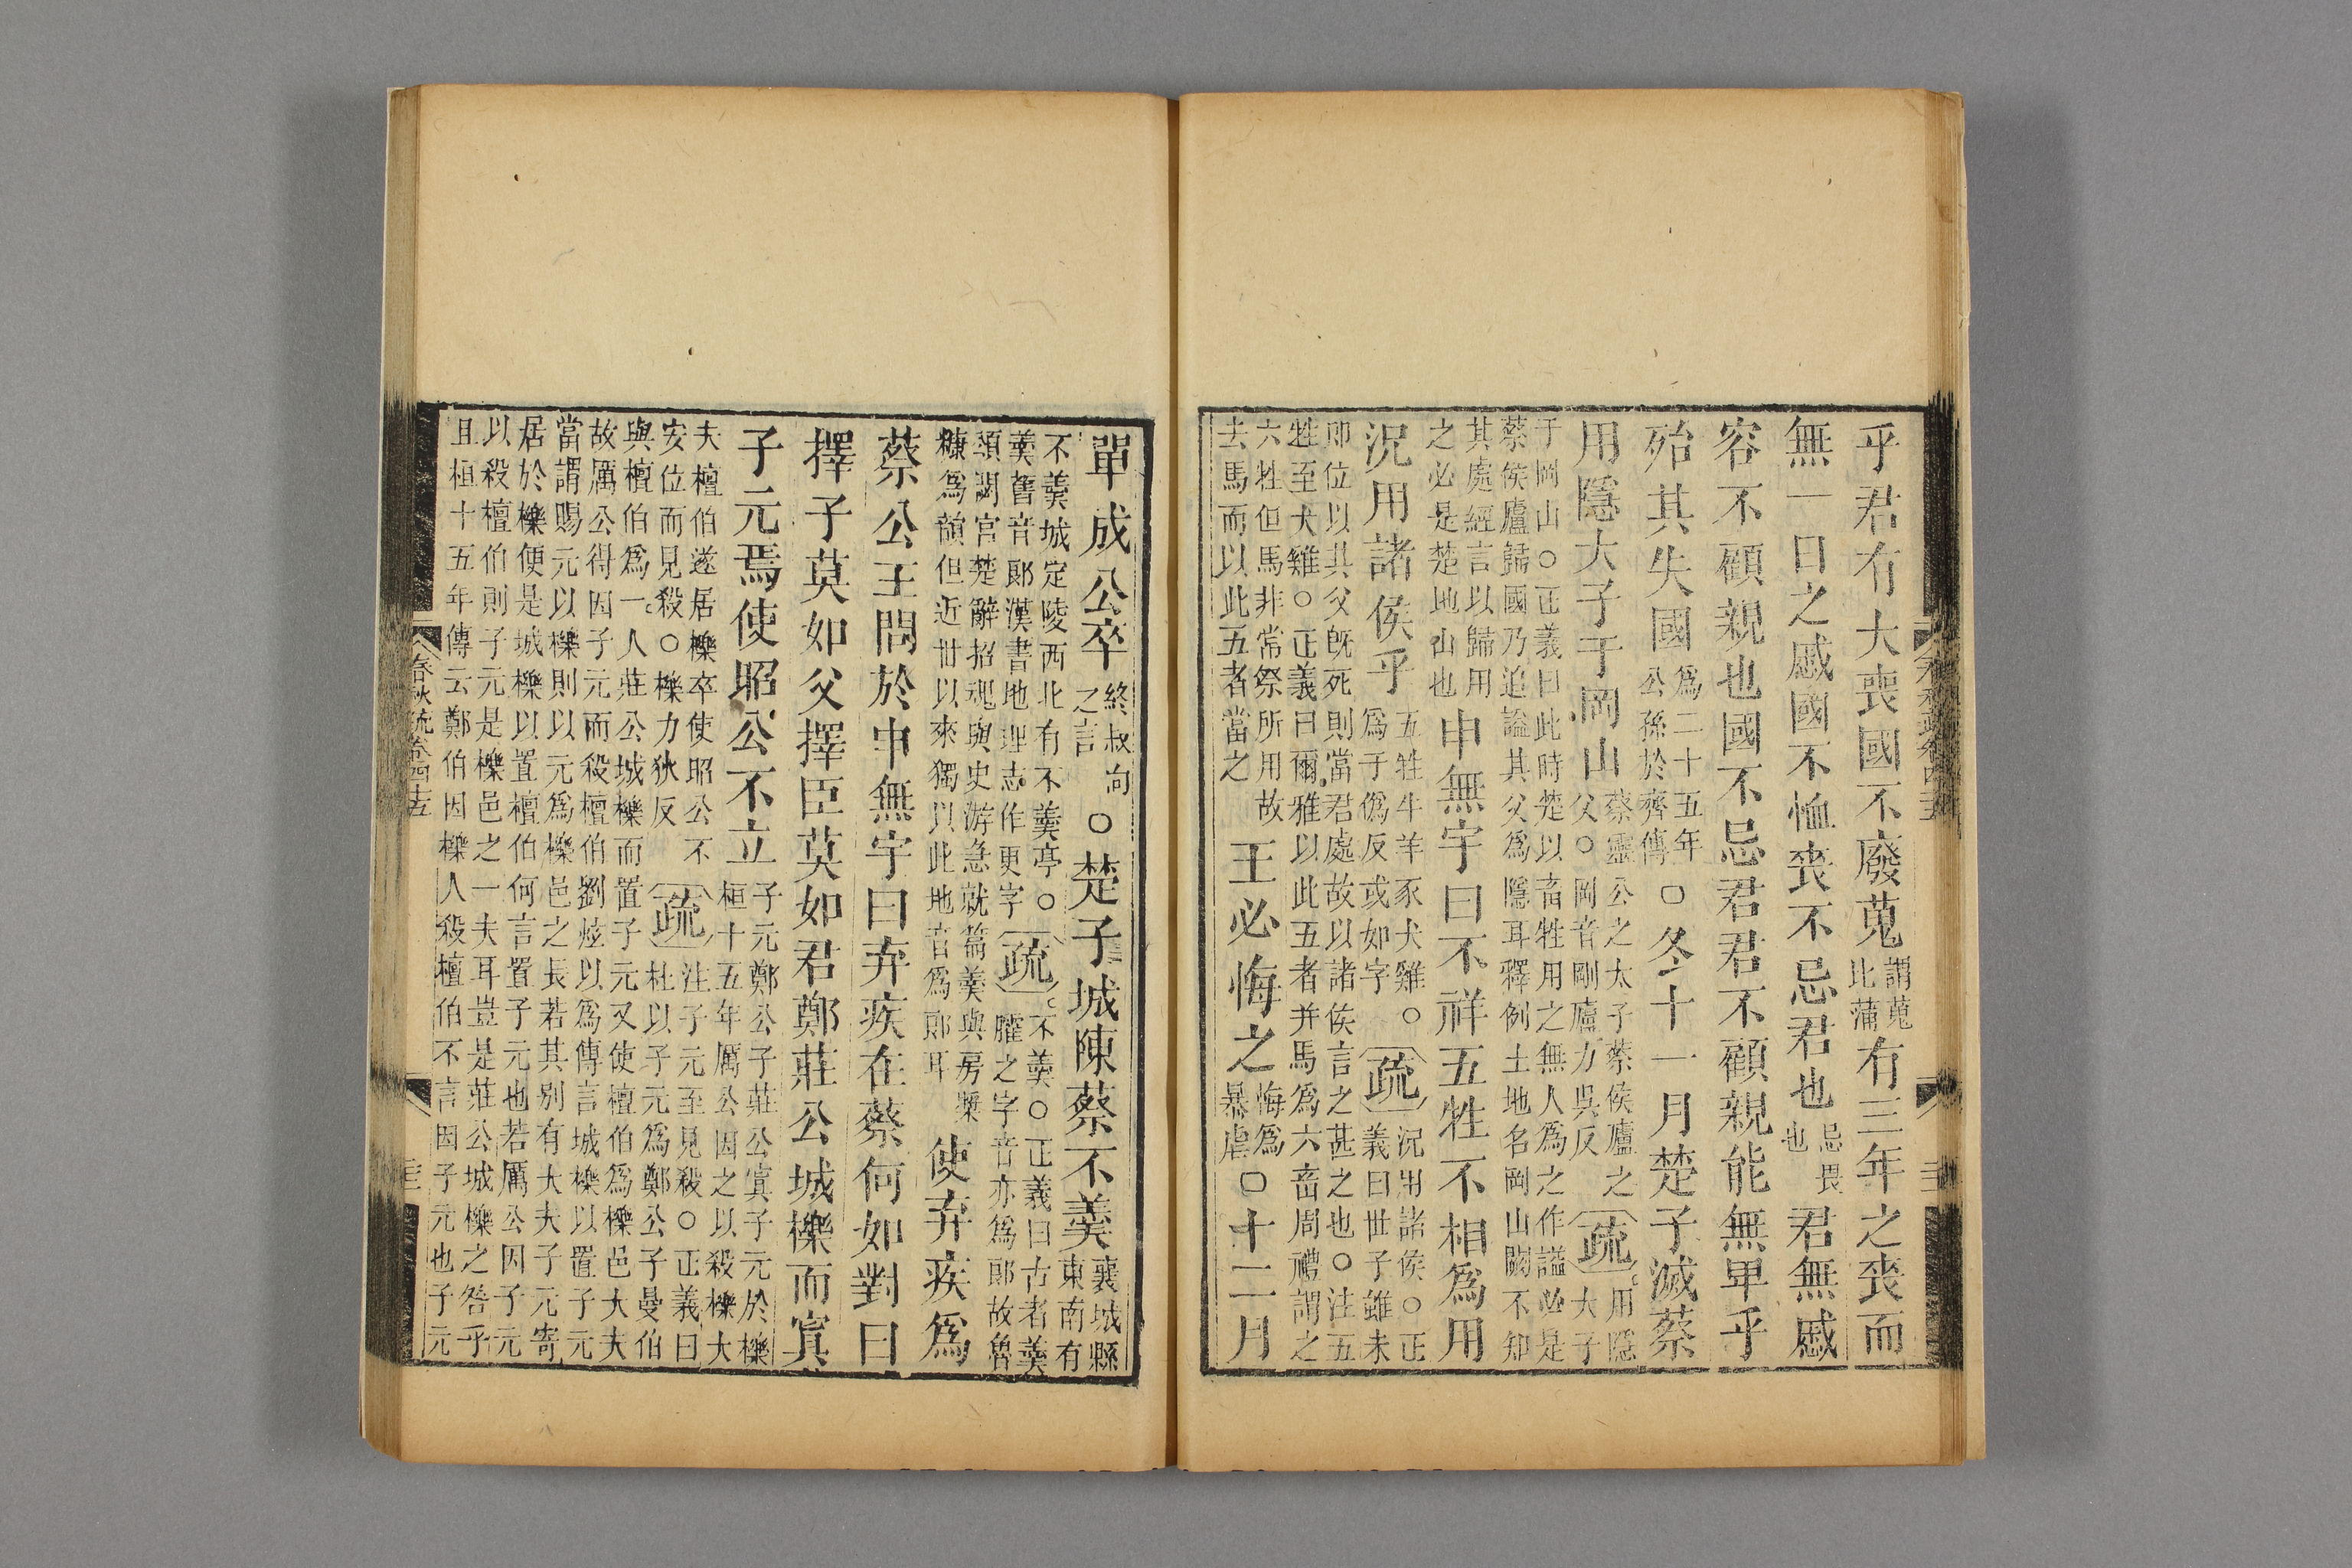 乎君有大喪國不廢蒐謂蒐此蒲有三年之喪而
無一日之慼國不恤喪不忌君也忌畏也君無慼
容不顧親也國不忌君君不顧親能無卑乎
殆其失國爲二十五年公孫於齊傳○冬十一月楚子滅蔡
用隱大子于岡山蔡靈公之太子蔡侯廬之父○岡音剛廬力吳反疏用隱大子
于岡山○正義曰此時楚以畜牲用之無人爲之作謚必是
蔡侯廬歸國乃追謚其父爲隱耳釋例土地名岡山闕不知
其處經言以歸用
之必是楚地山也申無宇曰不祥五牲不相爲用
況用諸侯乎五牲牛羊豕犬雞○爲于僞反或如字疏況用諸侯○正義曰世子雖未
即位以其父旣死則當君處故以諸侯言之甚之也○注五
牲至犬雞○正義曰爾雅以此五者并馬爲六畜周禮謂之
六牲但馬非常祭所用故
去馬而以此五者當之王必悔之悔爲暴虐○十二月
單成公卒終叔向之言○楚子城陳蔡不羹襄城縣東南有
不羹城定陵西北有不羹亭○
羹舊音郎漢書地理志作更字疏不羹○正義曰古者羹臛之字音亦爲郎故魯
頌閟宮楚辭招魂與史游急就篇羹與房漿
糠爲韻但近世以來獨以此地音爲郎耳使弃疾爲
蔡公王問於申無宇曰弃疾在蔡何如對曰
擇子莫如父擇臣莫如君鄭莊公城櫟而寘
子元焉使昭公不立子元鄭公子莊公寘子元於櫟桓十五年厲公因之以殺櫟大
夫檀伯遂居櫟卒使昭公不
安位而見殺○櫟力狄反疏注子元至見殺○正義曰杜以子元爲鄭公子曼伯
與檀伯爲一人莊公城櫟而置子元又使檀伯爲櫟邑大夫
故厲公得因子元而殺檀伯劉炫以爲傳言城櫟以置子元
當謂賜元以櫟則以元爲櫟邑之長若其別有大夫子元寄
居於櫟便是城櫟以置檀伯何言置子元也若厲公因子元
以殺檀伯則子元是櫟邑之一夫耳豈是莊公城櫟之咎乎
且桓十五年傳云鄭伯因櫟人殺檀伯不言因子元也子元
春秋疏卷四十五